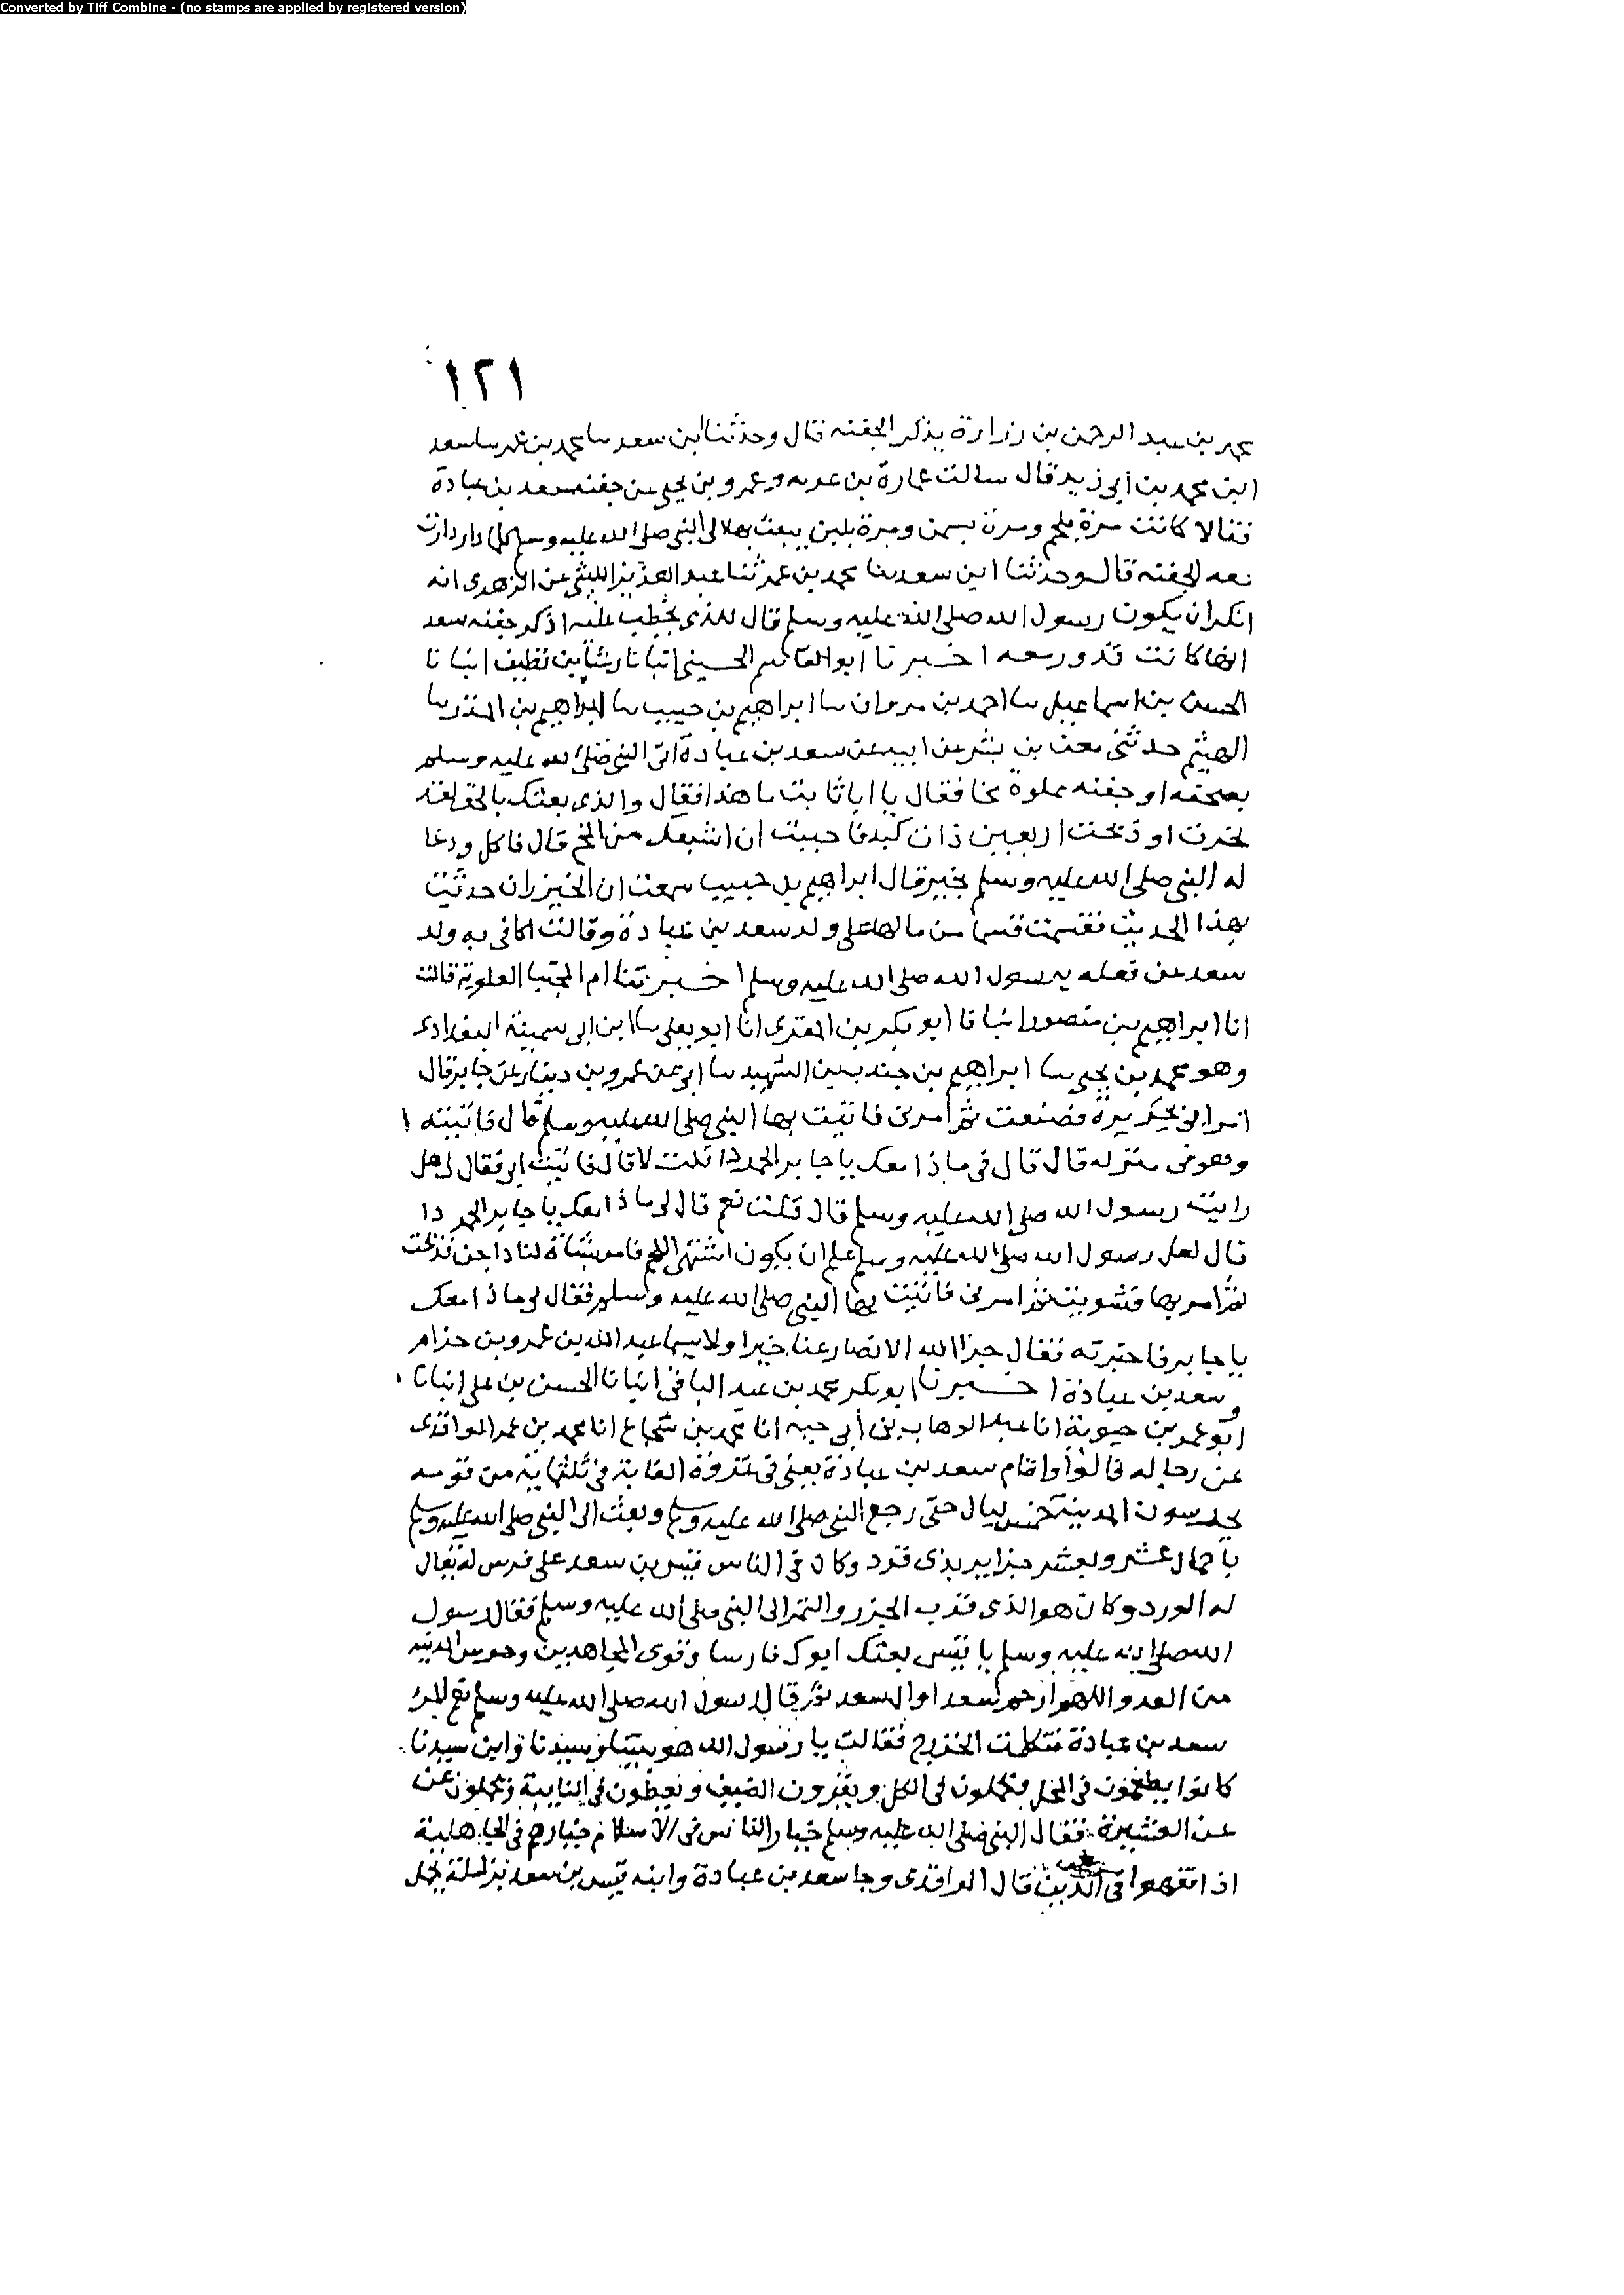 Converted by Tiff Combine - (no stamps are applied by registered version)
١٢١
محمد بن عبد الرحمن بن زرارة يذكر الجفنه قال وحدثنا ابن سعد سا محمد بن عمر سا سعد
ابن محمد بن ابي زيد قال سالت عمارة بن غزيه وعمرو بن يحيى عن جفنه سعد بن عبادة
فقالا كانت مرة بلحم ومرة بسمن ومرة بلبن يبعث بها الى النبي صلى الله عليه وسلم كلما دار دارت
معه الجفنه قال وحدثنا ابن سعد سا محمد بن عمر ثنا عبد العزيز الليثي عن الزهري انه
انكر ان يكون رسول الله صلى الله عليه وسلم قال للذي يخطب عليه اذكر جفنه سعد
انها كانت تدور معه اخبرنا ابو القاسم الحسيني انبانا رشا بن نظيف انبانا
الحسن بن اسماعيل سا احمد بن مروان سا ابراهيم بن حبيب سا ابراهيم بن المنذر سا
الهيثم حدثني معن بن بشر عن ابيه عن سعد بن عبادة اتى النبي صلى الله عليه وسلم
بصحفه او جفنه مملوة مخا فقال يا ابا ثابت ما هذا فقال والذي بعثك بالحق لقد
نحرت او ذبحت اربعين ذات كبد فاحببت ان اشبعك من المخ قال فاكل ودعا
له النبي صلى الله عليه وسلم بخير قال ابراهيم بن حبيب سمعت ان الخيزران حدثت
بهذا الحديث فقسمت قسما من مالها على ولد سعد بن عبادة وقالت اكافى به ولد
سعد عن فعله برسول الله صلى الله عليه وسلم اخبرتنا ام المجتبا العلوية قالت
انا ابراهيم بن منصور انبانا ابو بكر بن المقرى انا ابو يعلى سا ابن ابي سمينة البغدادى
وهو محمد بن يحيى سا ابراهيم بن حبيب بن الشهيد سا ابى عن عمرو بن دينار عن جابر قال
امر ابى بخزيرة فصنعت ثم امرنى فاتيت بها النبي صلى الله عليه وسلم قال فاتيته
وهو في منزله قال قال فى ماذا معك يا جابر الحمر ذا قلت لا قال فاتيت ابى فقال لى هل
رايت رسول الله صلى الله عليه وسلم قال قلت نعم قال لى ماذا معك يا جابر الحمر ذا
قال لعل رسول الله صلى الله عليه وسلم علم ان يكون اشتهى اللحم فامر بشاة لنا داجن فذبحت
ثم امر بها فشويت ثم امرنى فاتيت بها النبي صلى الله عليه وسلم فقال لى ماذا معك
يا جابر فاخبرته فقال جزا الله الانصار عنا خيرا ولا سيما عبد الله بن عمرو بن حزام
وسعد بن عبادة اخبرنا ابو بكر محمد بن عبد الباقى انبانا الحسن بن على انبانا
ابو عمر بن حيوية انا عبد الوهاب بن أبى حيه انا محمد بن شجاع انا محمد بن عمر الواقدى
عن رجاله قالوا واقام سعد بن عبادة يعنى فى غزوة الغابة فى ثلثماية من قومه
يحرسون المدينة خمس ليال حتى رجع النبي صلى الله عليه وسلم وبعث الى النبي صلى الله عليه وسلم
باحمال عشر وبعشر جزاير بذى قرد وكان فى الناس قيس بن سعد على فرس له يقال
له الورد وكان هو الذى قرب الجزر والتمر الى النبي صلى الله عليه وسلم فقال رسول
الله صلى الله عليه وسلم يا قيس بعثك ابوك فارسا وقوى المجاهدين وحرس المدينه
من العدو اللهم ارحم سعدا وال سعد ثم قال رسول الله صلى الله عليه وسلم نعم المرء
سعد بن عبادة فتكلمت الخزرج فقالت يا رسول الله هو بيتنا وسيدنا وابن سيدنا
كانوا يطعمون فى المحل ويحملون فى الكل ويقرون الضيف ويعطون فى النايبة ويحملون عن
عن العشيرة فقال النبي صلى الله عليه وسلم خيار الناس فى الاسلام خيارهم فى الجاهلية
اذا تفقهوا فى الدين قال الواقدى وجا سعد بن عبادة وابنه قيس بن سعد بزاملة تحمل